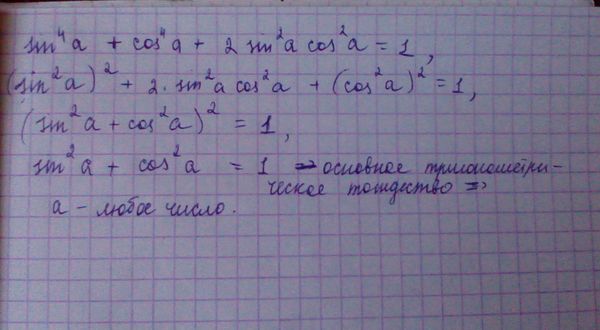 sin⁴a + cos⁴a + 2 sin²a cos²a = 1,
(sin²a)² + 2·sin²a cos²a + (cos²a)² = 1,
(sin²a + cos²a)² = 1,
sin²a + cos²a = 1 ⇒ основное тригонометри-
ческое тождество ⇒
a - любое число.